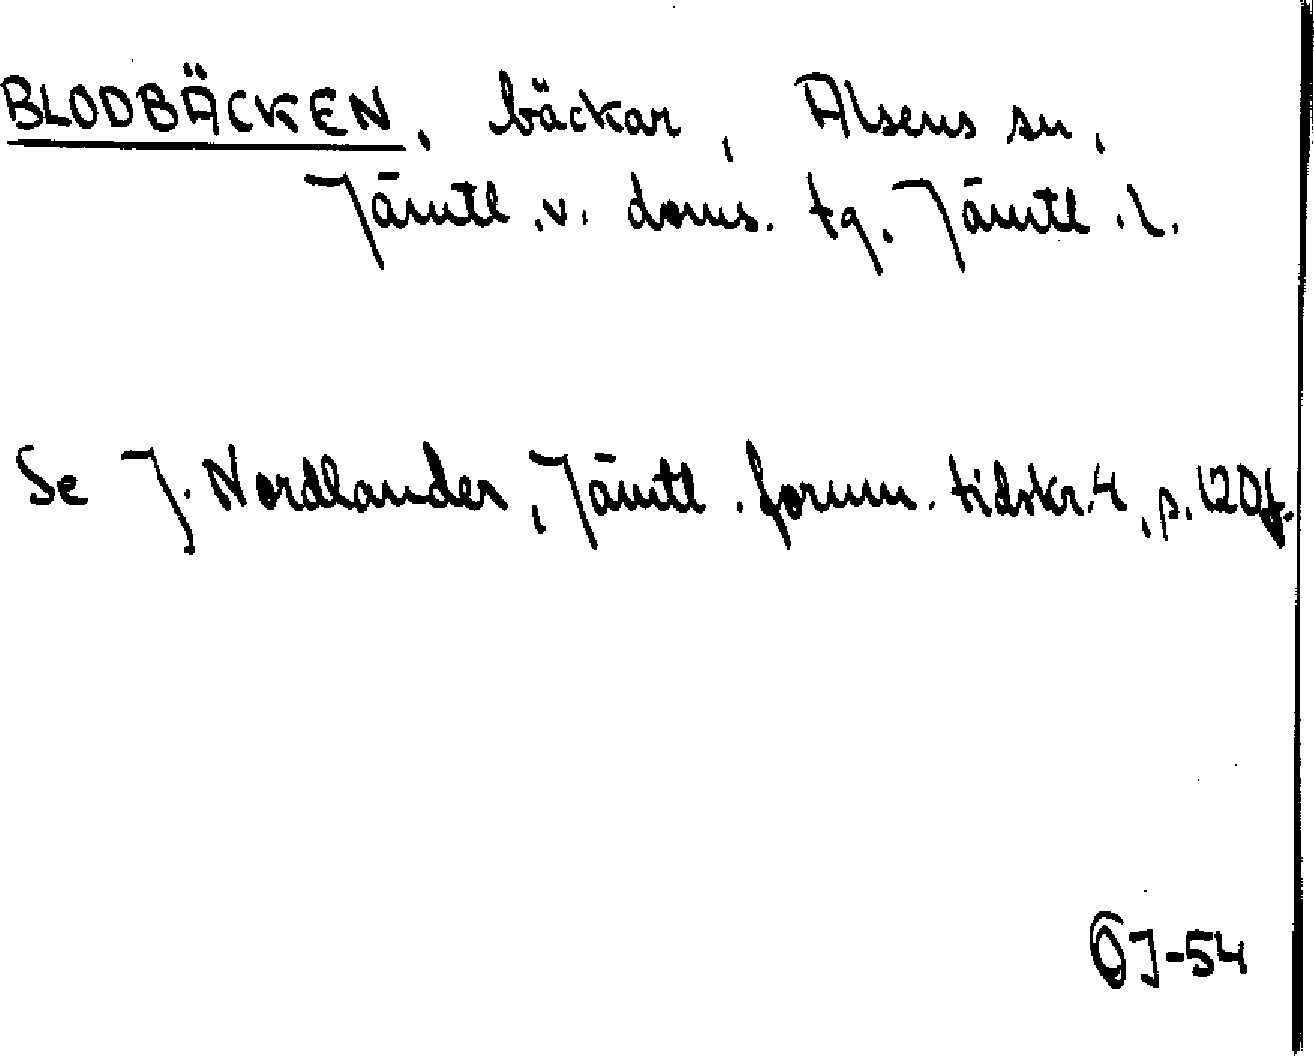 BLODBÄCKEN, bäckar, Alsens sn,
Jämtl. v. doms. tg. Jämtl. l.
Se J. Nordlander, Jämtl. fornm. tidskr. 4, p. 120f.
ÖJ-54